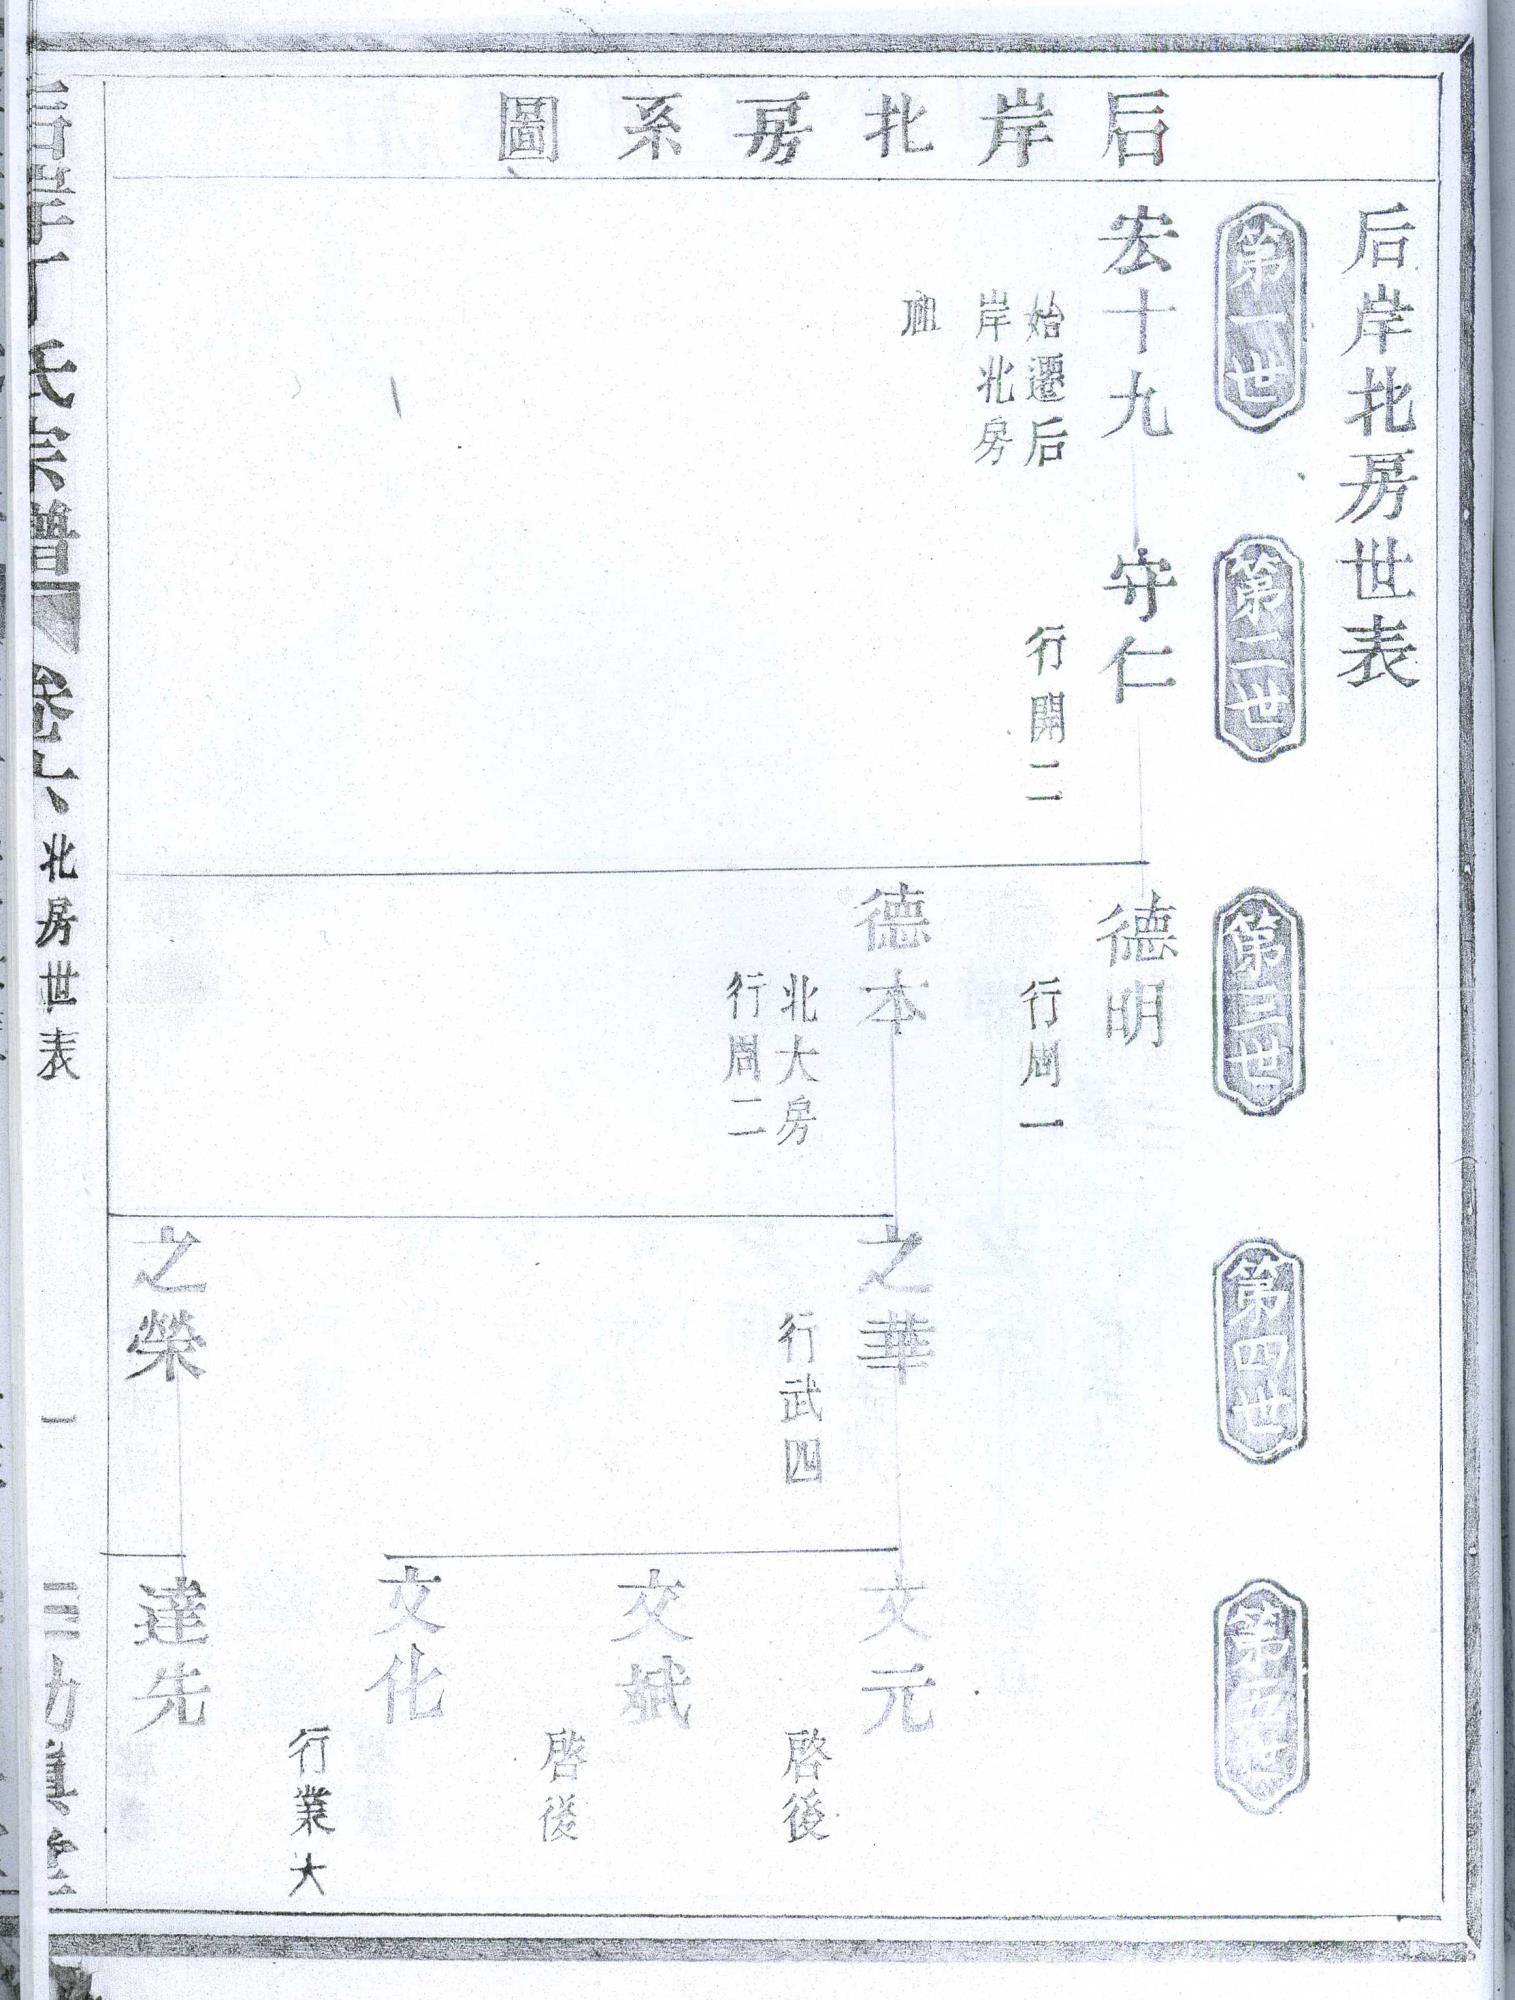 后岸北房系圖
后岸北房世表
第一世
第二世
第三世
第四世
第五世
宏十九
始遷后
岸北房
祖
守仁
行開二
德明
行周一
德本
北大房
行周二
之華
行武四
之榮
文元
啓後
文斌
啓後
文化
行業大
達先
氏宗譜
卷六
北房世表
一